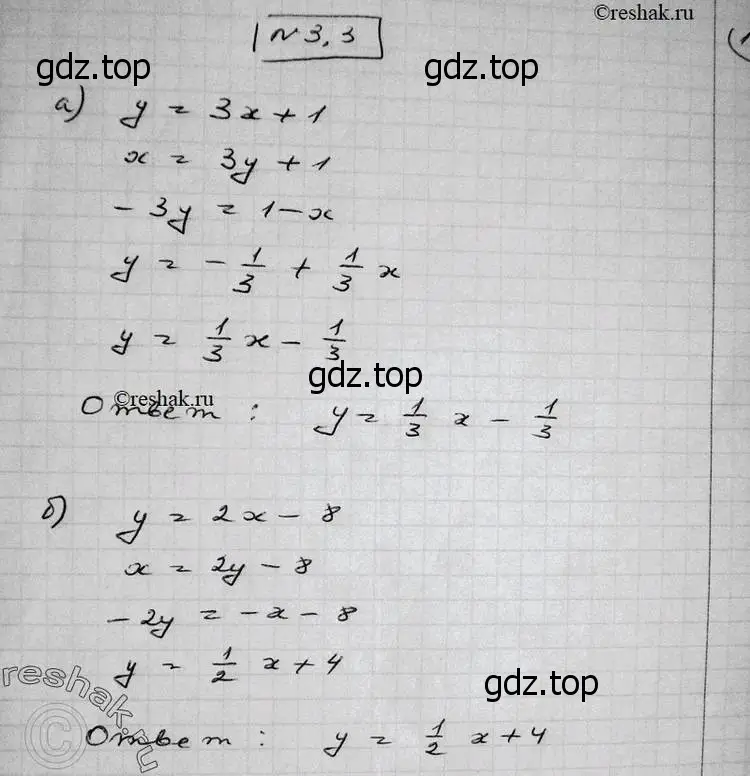 ©reshak.ru
№3,3
gdz.top gdz.top
а) y = 3x + 1
x = 3y + 1
- 3y = 1 - x
y = - 1/3 + 1/3 x
y = 1/3 x - 1/3
gdz.top
©reshak.ru
Ответ : y = 1/3 x - 1/3
б) y = 2x - 8
x = 2y - 8
- 2y = - x - 8
y = 1/2 x + 4
gdz.top
reshak.ru
©
Ответ : y = 1/2 x + 4